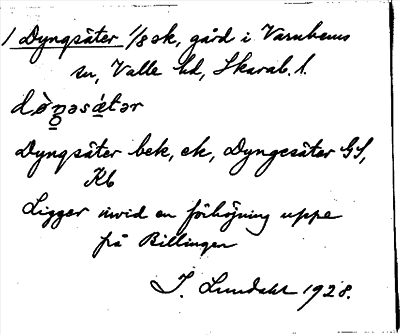 1 Dyngsäter 1/8 sk, gård i Varnhems
sn, Valle hd, Skarab. l.
Dyngsäter bek, ek, Dyngesäter GS,
Kb
Ligger invid en förhöjning uppe
på Billingen
I. Lundahl 1928.